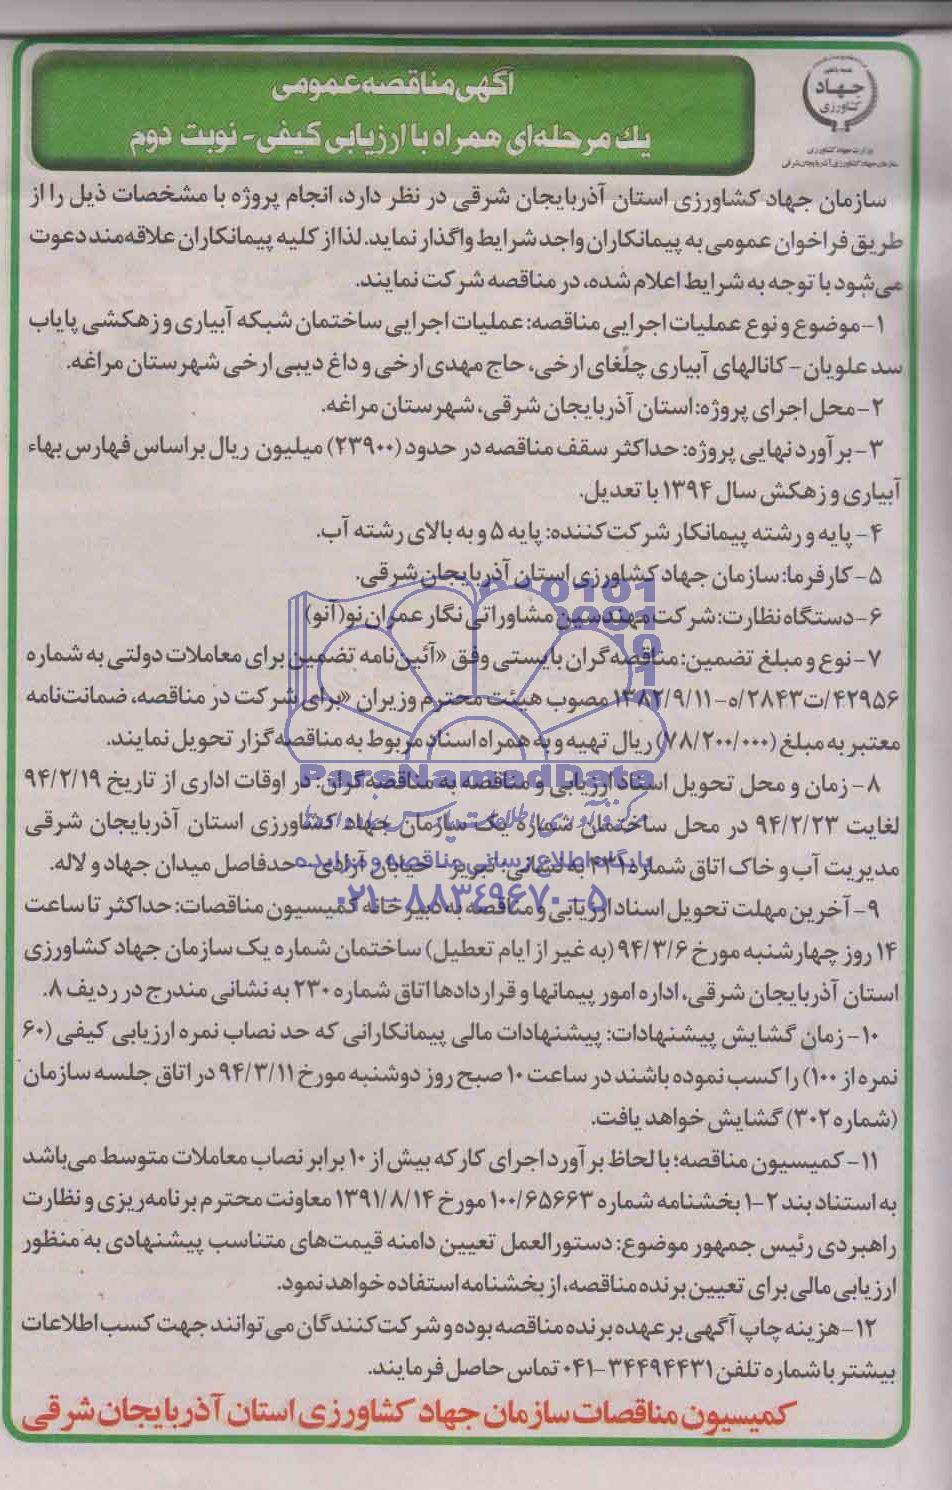 جهاد
کشاورزی
وزارت جهاد کشاورزی
سازمان جهاد کشاورزی آذربایجان شرقی
آگهی مناقصه عمومی
یك مرحله‌ای همراه با ارزیابی کیفی - نوبت دوم
سازمان جهاد کشاورزی استان آذربایجان شرقی در نظر دارد، انجام پروژه با مشخصات ذیل را از
طریق فراخوان عمومی به پیمانکاران واجد شرایط واگذار نماید. لذا از کلیه پیمانکاران علاقه‌مند دعوت
می‌شود با توجه به شرایط اعلام شده، در مناقصه شرکت نمایند.
۱- موضوع و نوع عملیات اجرایی مناقصه: عملیات اجرایی ساختمان شبکه آبیاری و زهکشی پایاب
سد علویان - کانالهای آبیاری چلغای ارخی، حاج مهدی ارخی و داغ دیبی ارخی شهرستان مراغه.
۲- محل اجرای پروژه: استان آذربایجان شرقی، شهرستان مراغه.
۳- برآورد نهایی پروژه: حداکثر سقف مناقصه در حدود (۲۳۹۰۰) میلیون ریال براساس فهارس بهاء
آبیاری و زهکش سال ۱۳۹۴ با تعدیل.
۴- پایه و رشته پیمانکار شرکت‌کننده: پایه ۵ و به بالای رشته آب.
۵- کارفرما: سازمان جهاد کشاورزی استان آذربایجان شرقی.
۶- دستگاه نظارت: شرکت مهندسین مشاور اتی نگار عمران نو (آنو)
۷- نوع و مبلغ تضمین: مناقصه‌گران بایستی وفق «آئین‌نامه تضمین برای معاملات دولتی به شماره
۴۲۹۵۶/ت۲۸۴۳/ه-۱۳۸۲/۹/۱۱ مصوب هیئت محترم وزیران «برای شرکت در مناقصه، ضمانت‌نامه
معتبر به مبلغ (۷۸/۲۰۰/۰۰۰) ریال تهیه و به همراه اسناد مربوط به مناقصه‌گزار تحویل نمایند.
۸- زمان و محل تحویل اسناد ارزیابی و مناقصه به مناقصه‌گران: در اوقات اداری از تاریخ ۹۴/۲/۱۹
لغایت ۹۴/۲/۲۳ در محل ساختمان شماره یک سازمان جهاد کشاورزی استان آذربایجان شرقی
مدیریت آب و خاک اتاق شماره ۴۳۱ به نشانی: تبریز - خیابان آزادی - حدفاصل میدان جهاد و لاله.
۹- آخرین مهلت تحویل اسناد ارزیابی و مناقصه به دبیرخانه کمیسیون مناقصات: حداکثر تا ساعت
۱۴ روز چهارشنبه مورخ ۹۴/۳/۶ (به غیر از ایام تعطیل) ساختمان شماره یک سازمان جهاد کشاورزی
استان آذربایجان شرقی، اداره امور پیمانها و قراردادها اتاق شماره ۲۳۰ به نشانی مندرج در ردیف ۸.
۱۰- زمان گشایش پیشنهادات: پیشنهادات مالی پیمانکارانی که حد نصاب نمره ارزیابی کیفی (۶۰
نمره از ۱۰۰) را کسب نموده باشند در ساعت ۱۰ صبح روز دوشنبه مورخ ۹۴/۳/۱۱ در اتاق جلسه سازمان
(شماره ۳۰۲) گشایش خواهد یافت.
۱۱- کمیسیون مناقصه؛ با لحاظ برآورد اجرای کار که بیش از ۱۰ برابر نصاب معاملات متوسط می‌باشد
به استناد بند ۲-۱ بخشنامه شماره ۱۰۰/۶۵۶۶۳ مورخ ۱۳۹۱/۸/۱۴ معاونت محترم برنامه‌ریزی و نظارت
راهبردی رئیس جمهور موضوع: دستورالعمل تعیین دامنه قیمت‌های متناسب پیشنهادی به منظور
ارزیابی مالی برای تعیین برنده مناقصه، از بخشنامه استفاده خواهد نمود.
۱۲- هزینه چاپ آگهی بر عهده برنده مناقصه بوده و شرکت‌کنندگان می‌توانند جهت کسب اطلاعات
بیشتر با شماره تلفن ۳۴۴۹۴۴۳۱-۰۴۱ تماس حاصل فرمایند.
کمیسیون مناقصات سازمان جهاد کشاورزی استان آذربایجان شرقی
ParsNamadData
پایگاه اطلاع رسانی مناقصه و مزایده
۰۲۱-۸۸۳۴۹۶۷۰-۵